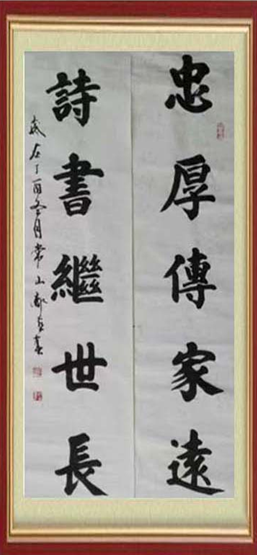 忠厚傳家遠
詩書繼世長
歲在丁酉冬月常山